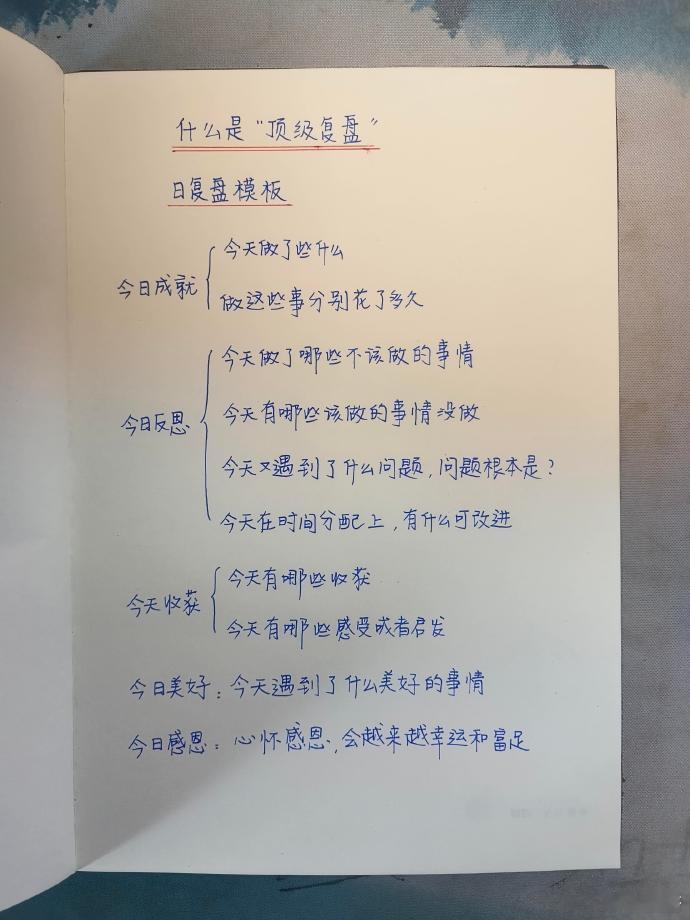 什么是“顶级复盘”
日复盘模板
今日成就
今天做了些什么
做这些事分别花了多久
今日反思
今天做了哪些不该做的事情
今天有哪些该做的事情没做
今天又遇到了什么问题，问题根本是？
今天在时间分配上，有什么可改进
今天收获
今天有哪些收获
今天有哪些感受或者启发
今日美好：今天遇到了什么美好的事情
今日感恩：心怀感恩，会越来越幸运和富足